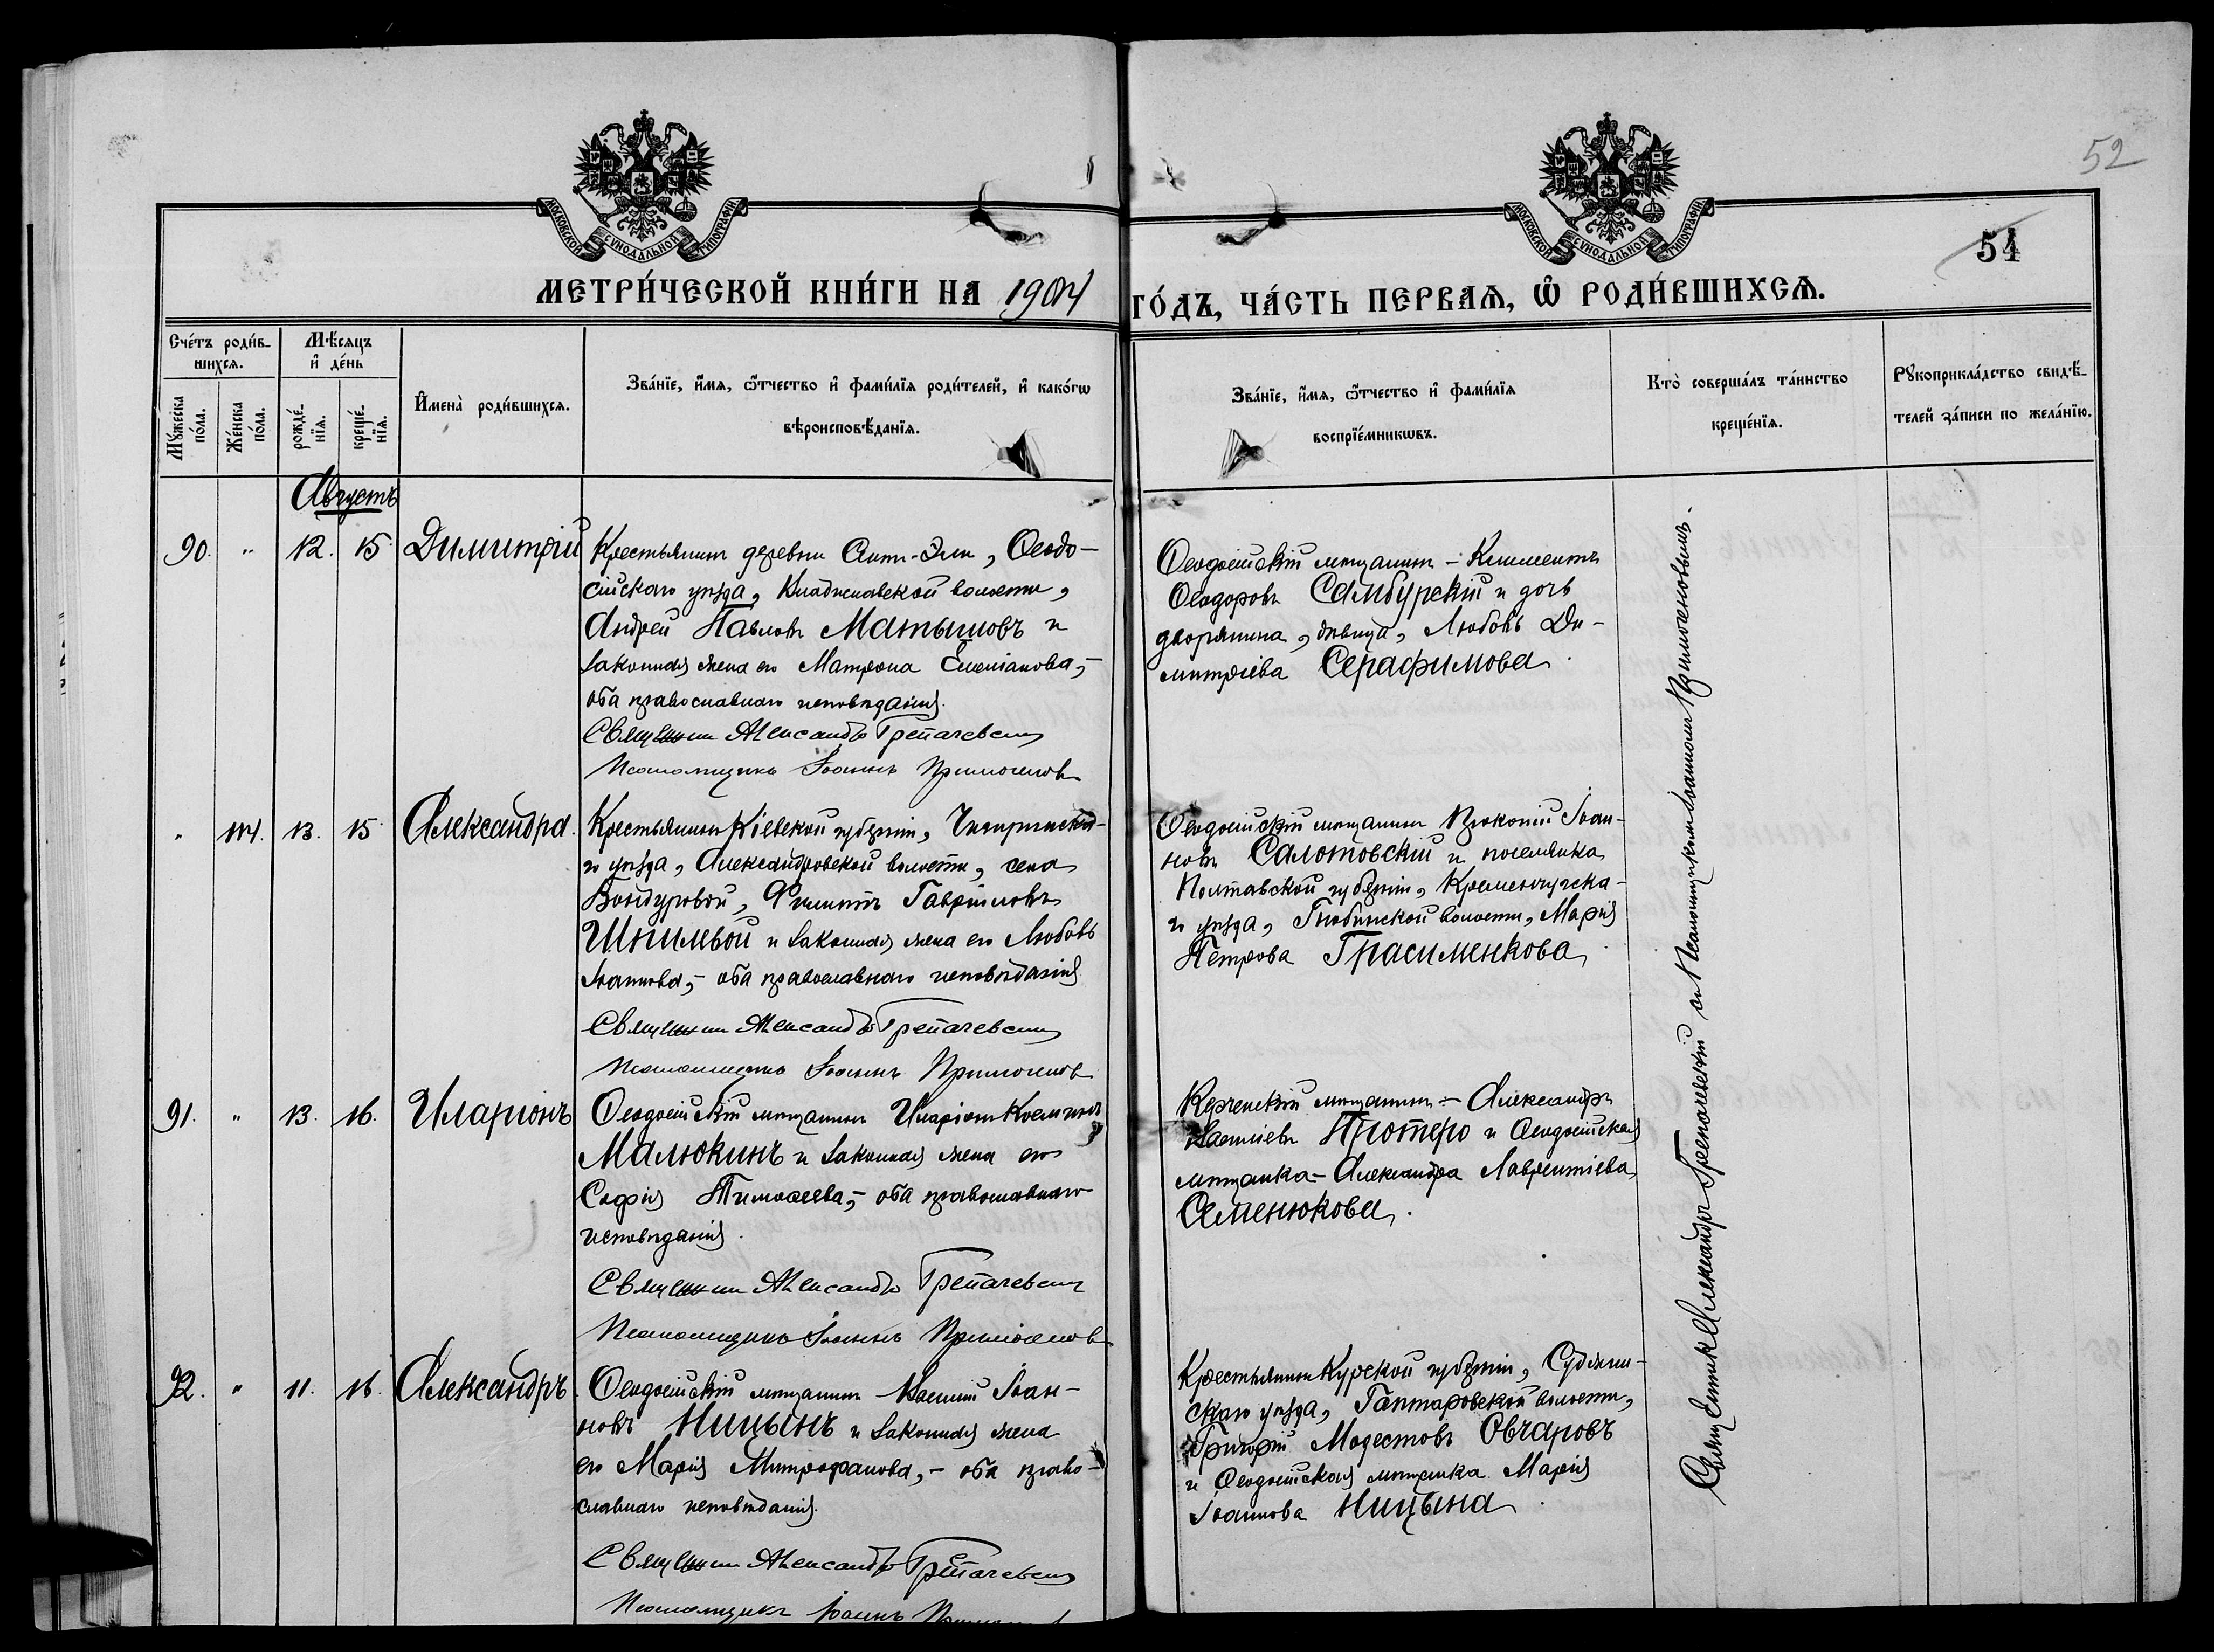 52
54
МОСКОВСКОЙ СѴНОДАЛЬНОЙ ТИПОГРАФІИ
МОСКОВСКОЙ СѴНОДАЛЬНОЙ ТИПОГРАФІИ
МЕТРИ́ЧЕСКОЙ КНИ́ГИ НА 1904 ГО́ДЪ, ЧА́СТЬ ПЕРВАѦ, Ѡ҆ РОДИ́ВШИХСѦ.
Сче́тъ роди́в-
шихсѧ.
Мꙋ́жеска по́ла.
Же́нска по́ла.
Мѣ́сѧцъ
и҆ де́нь
рожде́-
нїѧ.
креще́-
нїѧ.
И҆мена̀ роди́вшихсѧ.
Зва́нїе, и҆́мѧ, ѻ҆́тчество и҆ фами́лїѧ роди́телей, и҆ како́гѡ
вѣроисповѣ́данїѧ.
Зва́нїе, и҆́мѧ, ѻ҆́тчество и҆ фами́лїѧ
воспрїе́мникѡвъ.
Кто̀ соверша́лъ та́инство
креще́нїѧ.
Рꙋкоприкла́дство свидѣ́-
телей за́писи по жела́нїю.
Августъ
90. " 12. 15. Димитрій
Крестьянинъ деревни , Ѳеодо-
сійскаго уѣзда, Владиславской волости,
Андрей Павловъ Матышовъ и
законная жена его Матрона Емеліанова,-
оба православнаго исповѣданія.
Священник Александръ Трепачевский
Псаломщикъ Іоаннъ Примоченов
Ѳеодосійскій мѣщанинъ - Климентъ
Ѳеодоровъ Самбурскій и дочь
дворянина, дѣвица, Любовь Ди-
митріева Серафимова.
" 114. 13. 15. Александра.
Крестьянинъ Кіевской губерніи, Чигиринска-
го уѣзда, Александровской волости, села
Бондуровой, Филиппъ Гавріиловъ
Шпилевой и законная жена его Любовь
Іоаннова,- оба православнаго исповѣданія
Священник Александръ Трепачевский
Псаломщикъ Іоаннъ Примоченов
Ѳеодосійскій мѣщанинъ Прокопій Іоан-
новъ Салотовскій и поселянка
Полтавской губерніи, Кременчугска-
го уѣзда, Глобинской волости, Марія
Петрова Герасименкова.
91. " 13. 16. Иларіонъ
Ѳеодосійскій мѣщанинъ Иларіонъ Козминъ
Малюкинъ и законная жена его
Софія Тимоѳеева,- оба православнаго
исповѣданія.
Священник Александръ Трепачевский
Псаломщикъ Іоаннъ Примоченов
Керченскій мѣщанинъ - Александръ
Василіевъ Протеро и Ѳеодосійская
мѣщанка - Александра Лаврентіева
Семенюкова.
92. " 11. 16. Александръ.
Ѳеодосійскій мѣщанинъ Василій Іоан-
новъ Ницынъ и законная жена
его Марія Митрофанова,- оба право-
славнаго исповѣданія.
Священник Александръ Трепачевский
Псаломщикъ Іоаннъ
Крестьянинъ Курской губерніи, Суджан-
скаго уѣзда, Гаптаровской волости,
Григорій Модестовъ Овчаровъ
и Ѳеодосійская мѣщанка Марія
Іоаннова Ницына.
Священникъ Александръ Трепачевскій съ Псаломщикомъ Іоанномъ Примоченовымъ.